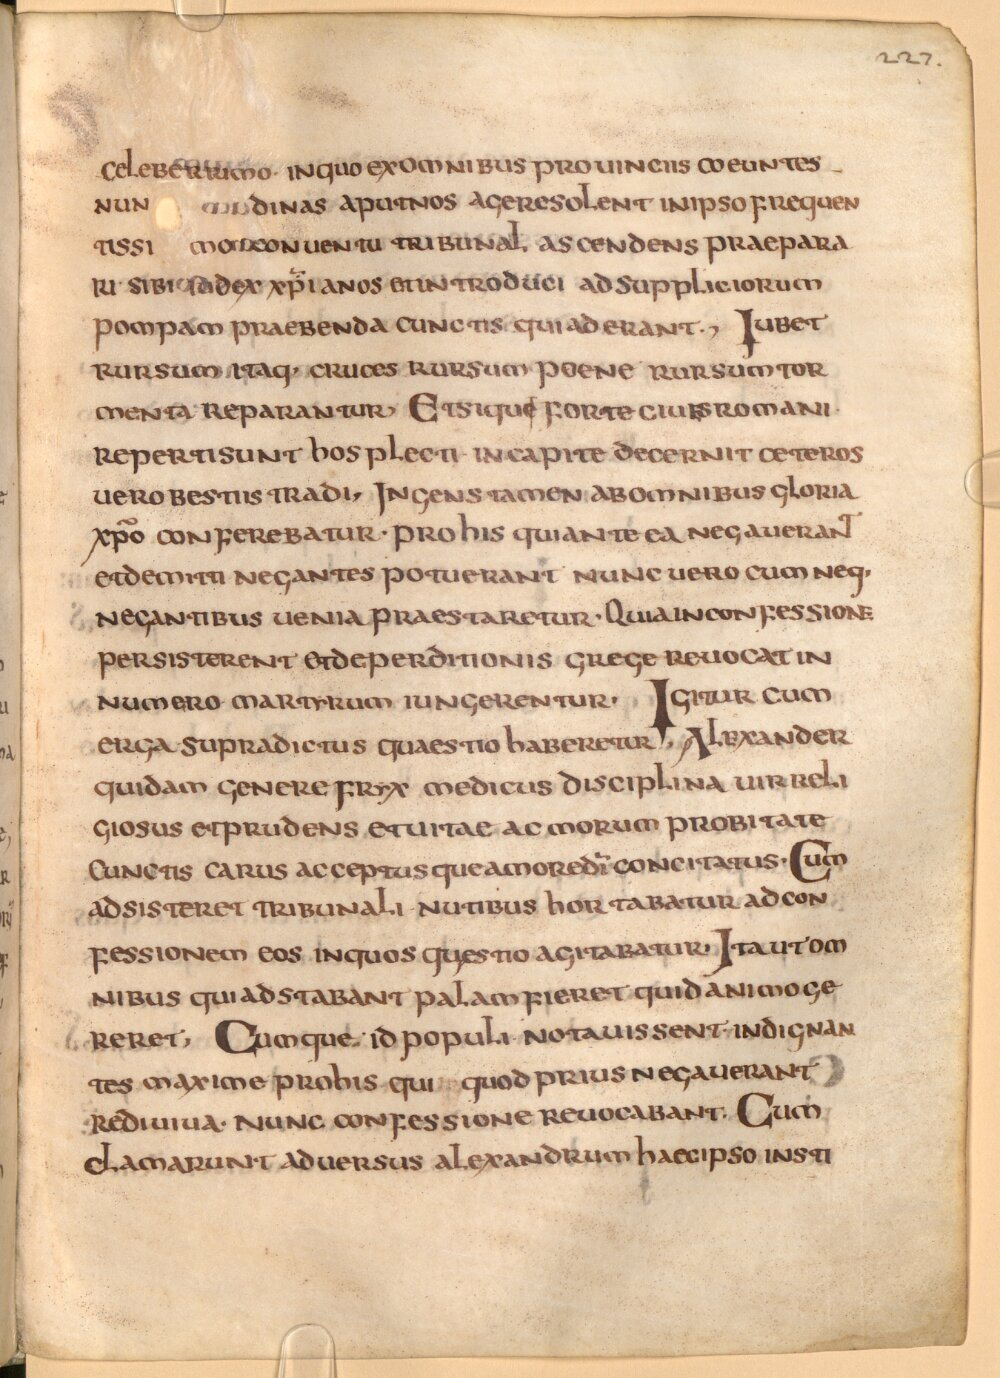 227.
celeberrimo· inquo exomnibus prouinciis coeuntes
nun dinas aputnos ageresolent inipso frequen
tissi mo conuentu tribunal, ascendens praepara
ri sibi iudex xp̄ianos etintroduci adsuppliciorum
pompam praebenda cunctis quiaderant., Iubet
rursum itaq· cruces rursum poene rursum tor
menta reparantur, Etsique forte ciues romani
repertisunt hos plecti incapite decernit ceteros
uero bestiis tradi, Ingens tamen abomnibus gloria
xp̄o conferebatur· prohis quiante ea negauerant
etdemitti negantes potuerant nunc uero cum neq·
negantibus uenia praestaretur· Quiainconfessione
persisterent etdeperditionis grege reuocatin
numero martyrum iungerentur· Igitur cum
erga supradictus quaestio haberetur, Alexander
quidam genere fryx medicus disciplina uir reli
giosus etprudens etuitae ac morum probitate
cunctis carus acceptusque amoredi̅ concitatus· Cum
adsisteret tribunali nutibus hortabatur adcon
fessionem eos inquos questio agitabatur· Itautom
nibus quiadstabant palamfieret quid animoge
reret, Cumque id populi notauissent indignan
tes maxime prohis qui quod prius negauerant
rediuiua· nunc confessione reuocabant. Cum
clamarunt aduersus alexandrum haecipso insti